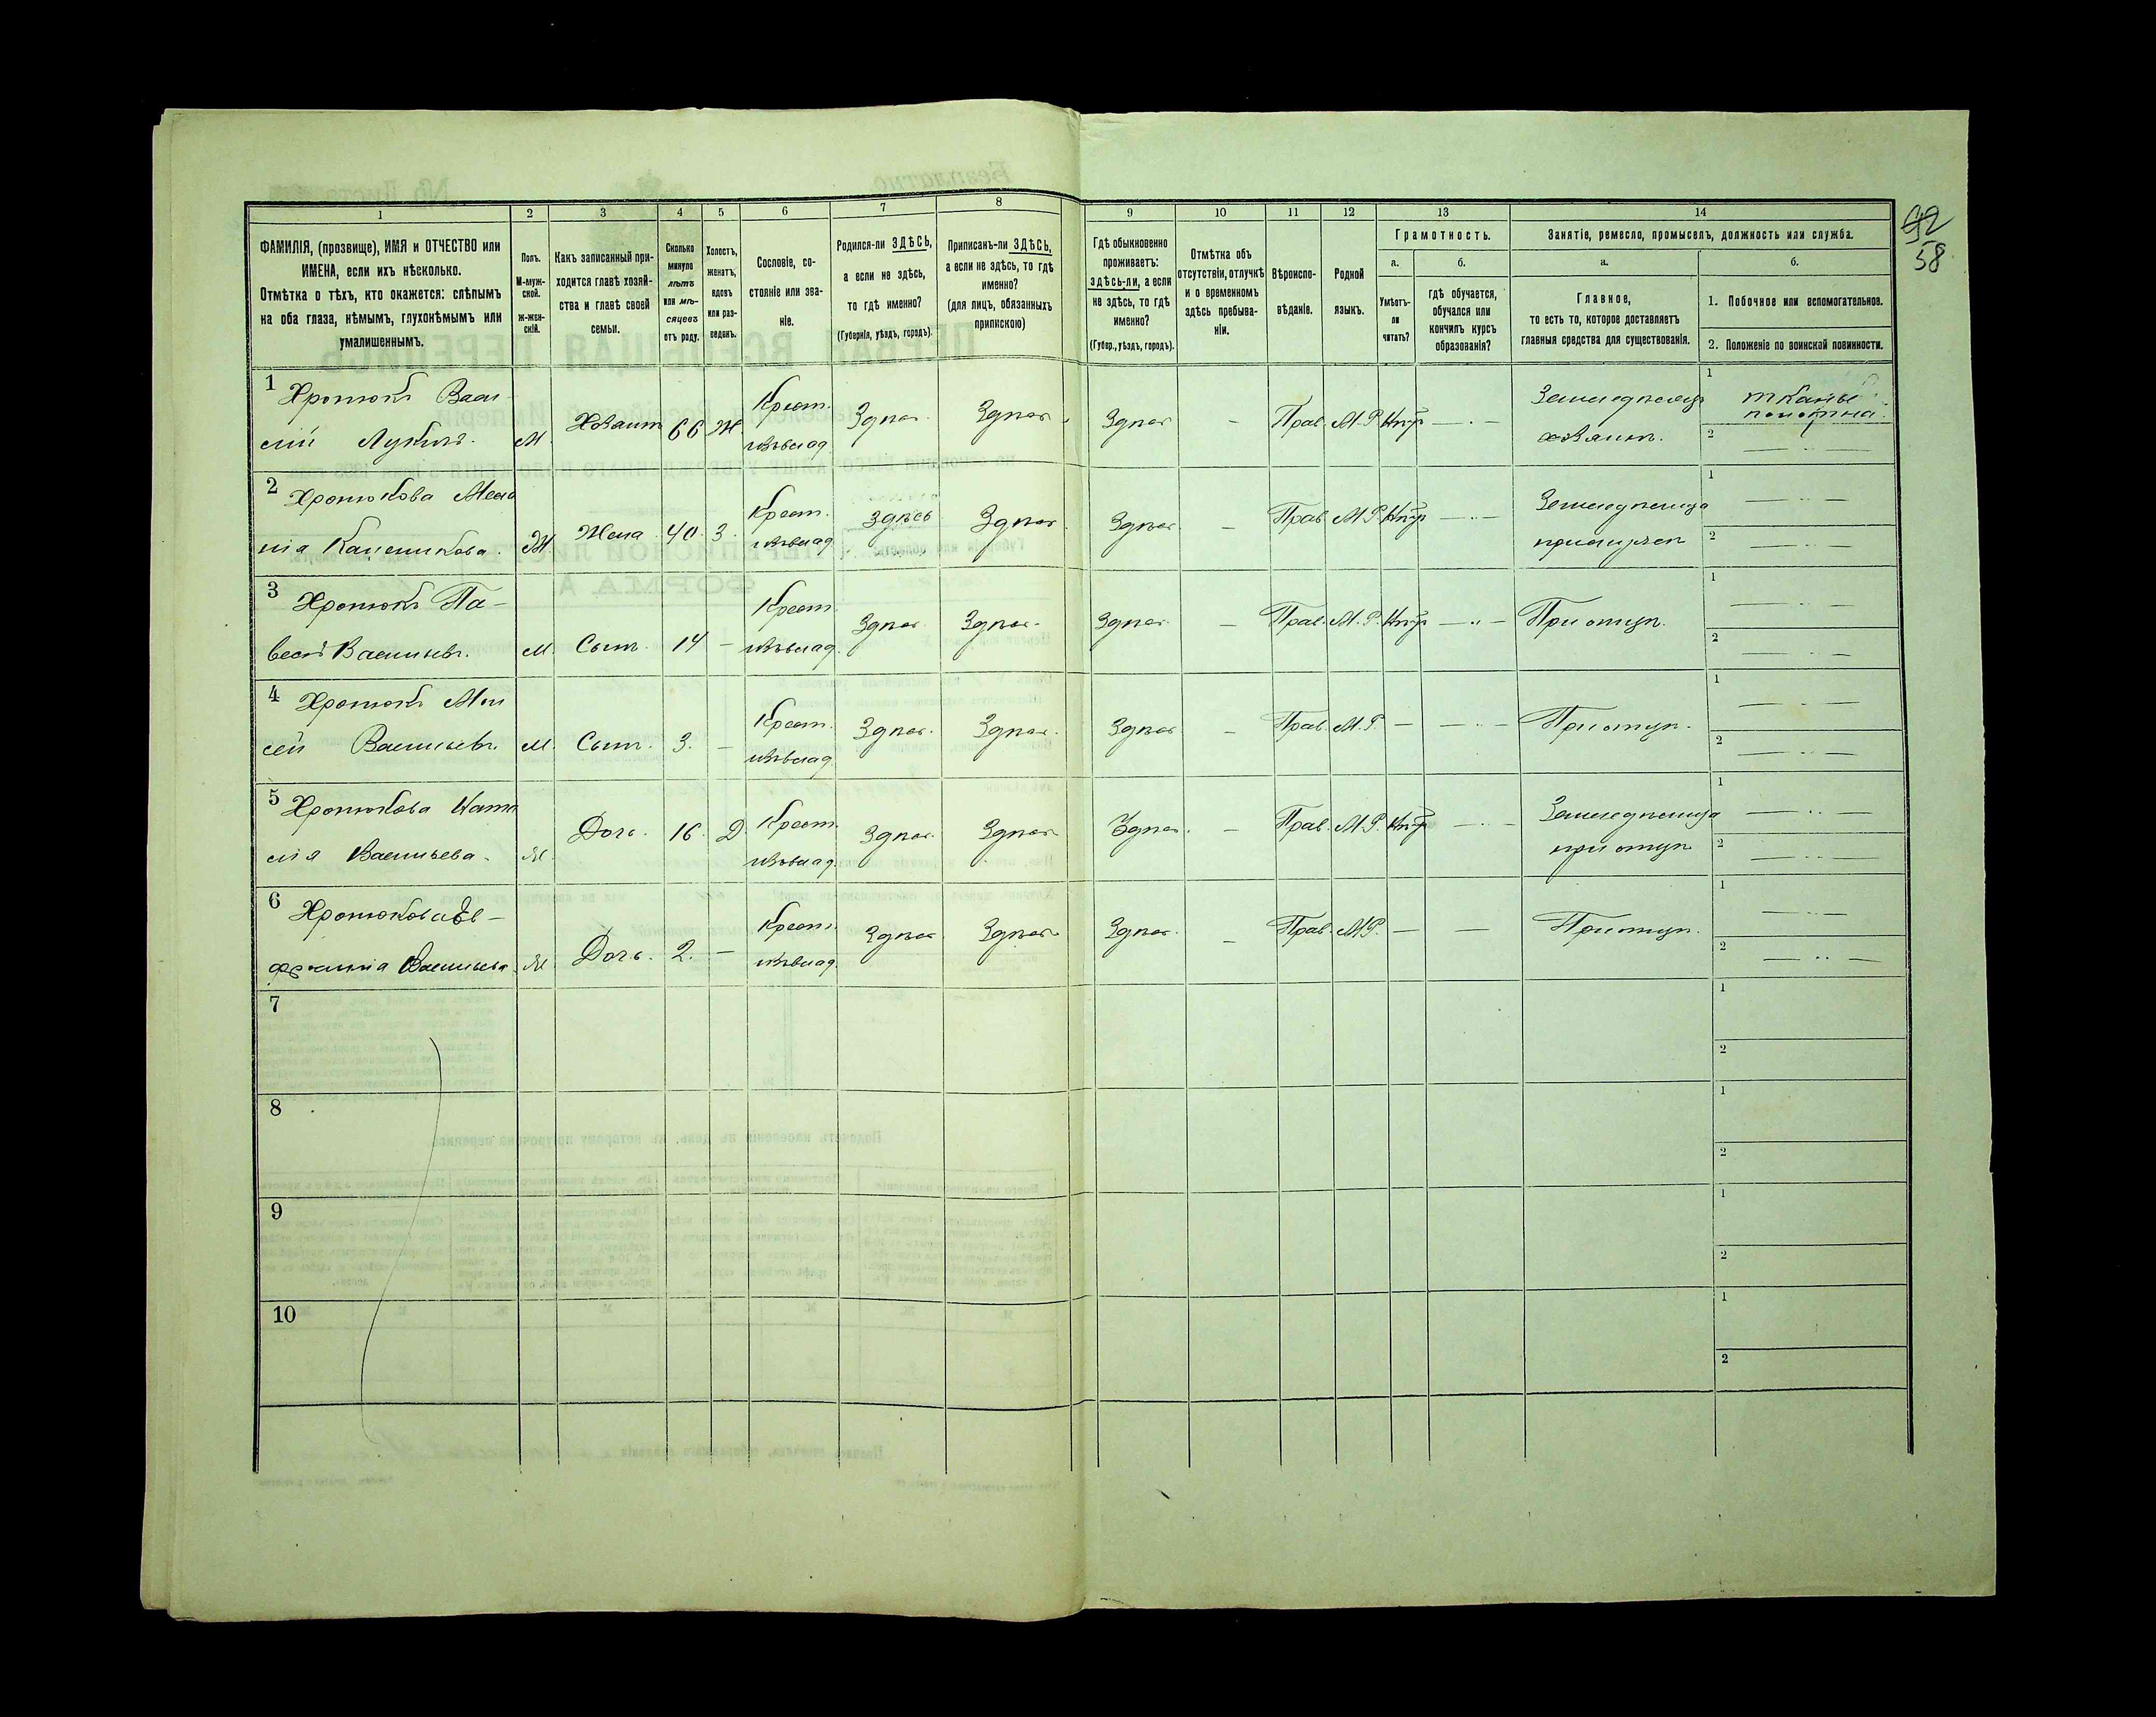 92
58
1 2 3 4 5 6 7 8 9 10 11 12 13 14
ФАМИЛІЯ, (прозвище), ИМЯ и ОТЧЕСТВО или
ИМЕНА, если ихъ нѣсколько.
Отмѣтка о тѣхъ, кто окажется: слѣпымъ
на оба глаза, нѣмымъ, глухонѣмымъ или
умалишеннымъ.
Полъ.
М-муж-
ской.
Ж-жен-
скій.
Какъ записанный при-
ходится главѣ хозяй-
ства и главѣ своей
семьи.
Сколько
минуло
лѣтъ
или мѣ-
сяцевъ
отъ роду.
Холостъ,
женатъ,
вдовъ
или раз-
веденъ.
Сословіе, со-
стояніе или зва-
ніе.
Родился-ли ЗДѢСЬ,
а если не здѣсь,
то гдѣ именно?
(Губернія, уѣздъ, городъ).
Приписанъ-ли ЗДѢСЬ,
а если не здѣсь, то гдѣ
именно?
(для лицъ, обязанныхъ
припискою)
Гдѣ обыкновенно
проживаетъ:
здѣсь-ли, а если
не здѣсь, то гдѣ
именно?
(Губер., уѣздъ, городъ).
Отмѣтка объ
отсутствіи, отлучкѣ
и о временномъ
здѣсь пребыва-
ніи.
Вѣроиспо-
вѣданіе.
Родной
языкъ.
Грамотность.
а.
Умѣетъ-
ли
читать?
б.
Гдѣ обучается,
обучался или
кончилъ курсъ
образованія?
Занятіе, ремесло, промыселъ, должность или служба.
а.
Главное,
то есть то, которое доставляетъ
главныя средства для существованія.
б.
1. Побочное или вспомогательное.
2. Положеніе по воинской повинности.
1 Хропюкъ Васи-
лій Лукинъ. М. Хозяинъ 66 Ж. Крест. Здѣсь. Здѣсь. Здѣсь - Прав. М.Р. Нѣтъ — Земледѣлецъ
хозяинъ.
1 тканье
полотна.
2 —
2 Хропюкова Мела
нія Ж Жена 40. З. Крест. здѣсь Здѣсь. Здѣсь - Прав М.Р. Нѣтъ — Земледѣлица
1 —
2 —
3 Хропюкъ Па-
велъ Васильевъ. М. Сынъ. 14 - Крест. Здѣсь. Здѣсь. Здѣсь. - Прав. М.Р. Нѣтъ — При отцѣ.
1 —
2 —
4 Хропюкъ Мои
сей Васильевъ. М. Сынъ. 3. - Крест. Здѣсь. Здѣсь. Здѣсь - Прав. М.Р. — — При отцѣ.
1 —
2 —
5 Хропюкова Ната
лія Васильева. Ж. Дочь. 16. Д. Крест. Здѣсь. Здѣсь Здѣсь. - Прав. М.Р. Нѣтъ — Земледѣлица
при отцѣ
1 —
2 —
6 Хропюкова Ев-
Васильева. Ж. Дочь. 2. - Крест. Здѣсь Здѣсь Здѣсь. - Прав. М.Р. — — При отцѣ.
1 —
2 —
7
1
2
8
1
2
9
1
2
10
1
2